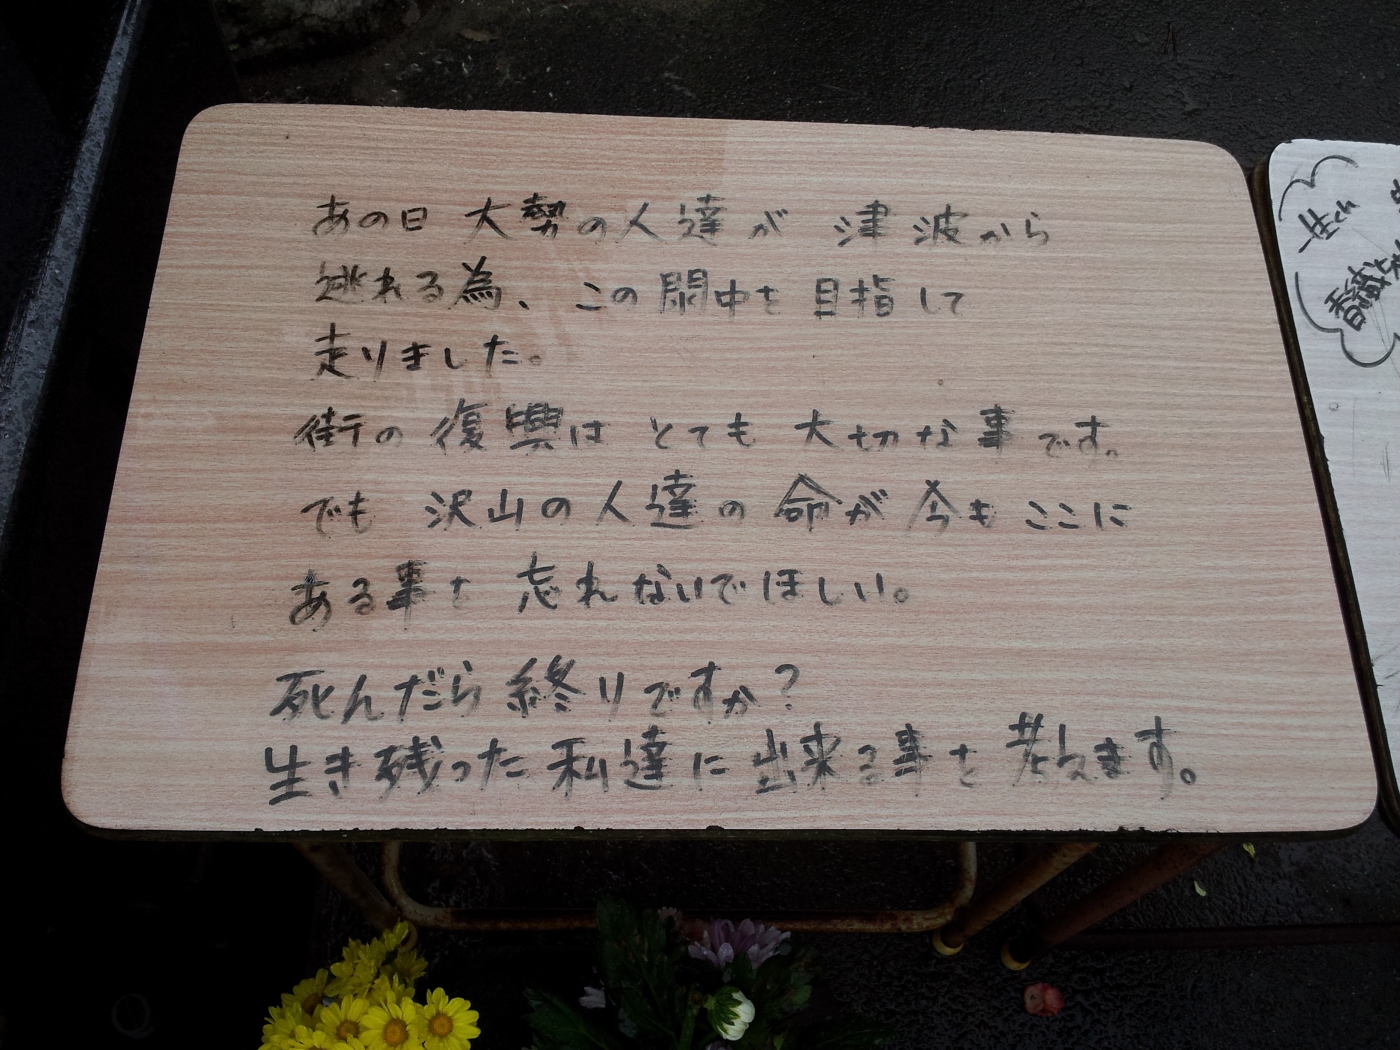 あの日 大勢の人達が 津波から
逃れる為、この閖中を目指して
走りました。
街の復興は とても 大切な事です。
でも 沢山の人達の命が今もここに
ある事を 忘れないでほしい。
死んだら終りですか?
生き残った私達に出来る事を考えます。